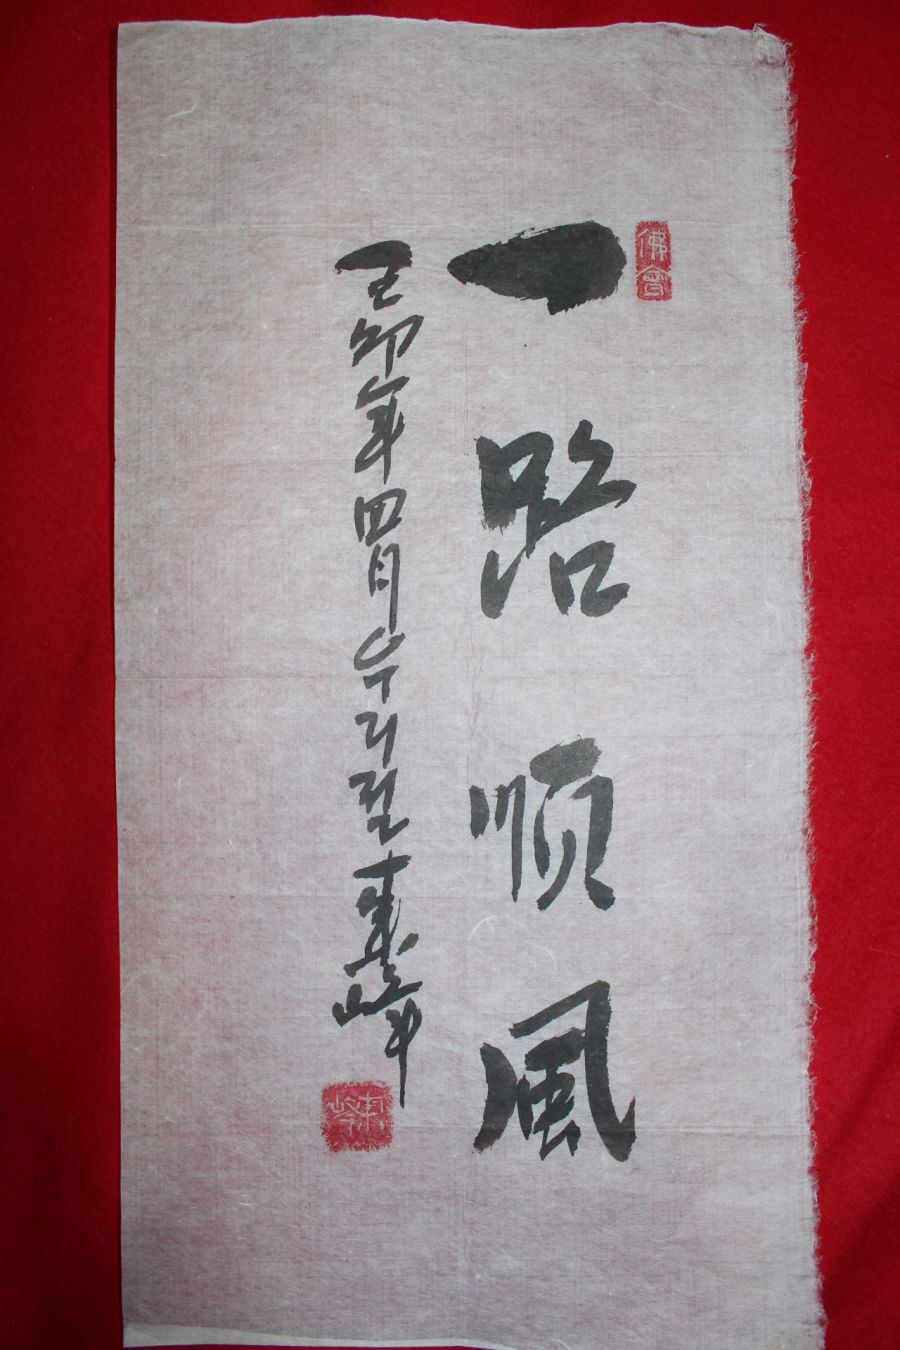 佛
一路順風
己卯年四月우리절東峰
東峰